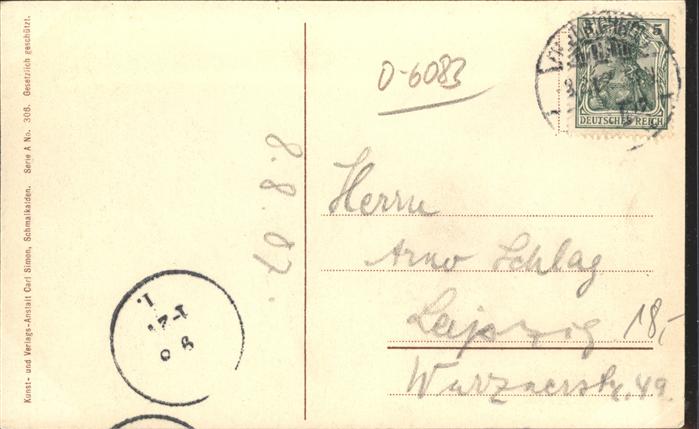 Kunst- und Verlags-Anstalt Carl Simon, Schmalkalden. Serie A No. 306. Gesetzlich geschützt.
8. 8. 07.
0-6083
5
DEUTSCHES REICH
Herrn
Arno Schlag
Leipzig 18,-
Wurznerstr. 49.